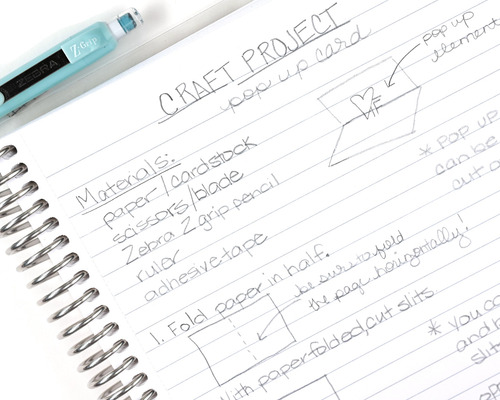 ZEBRA Z-Grip
CRAFT PROJECT
pop up card
pop up
element
Materials:
paper/cardstock
scissors/blade
Zebra Z grip pencil
ruler
adhesive tape
* POP UP
can be
cut o
1. Fold paper in half.
be sure to fold
the page horizontally!
With paper folded, cut slits.
* you c
and
slit